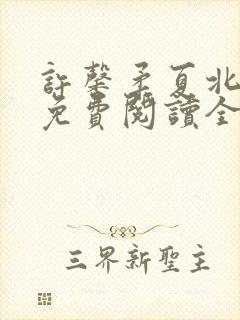 許馨矛夏北
免費閱讀全
三界新聖主